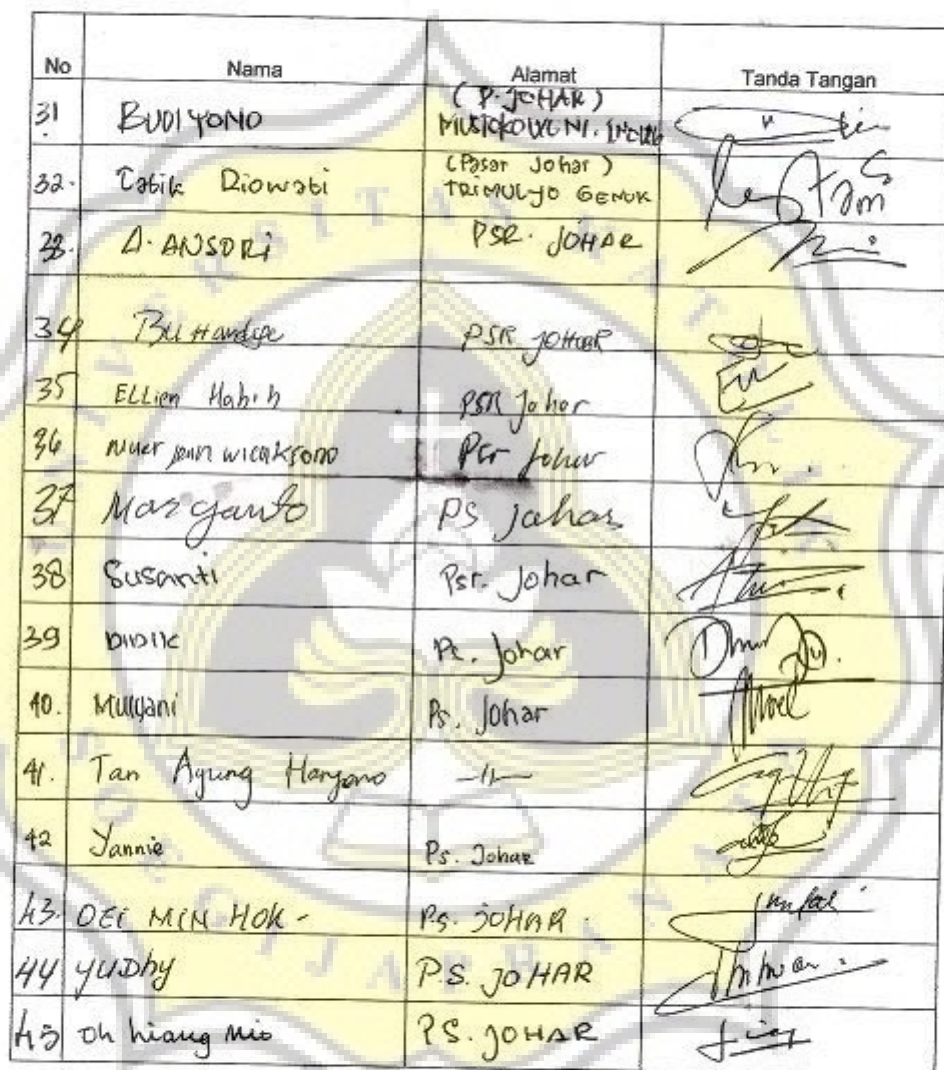 No Nama Alamat Tanda Tangan
31. BUDIYONO (P. JOHAR)
MUSTOKOWENI.
32. Tatik Diowati (Pasar Johar)
TRIMULYO GENUK
33. A. ANSORI PSR. JOHAR
34 Bu Handoyo PSR JOHAR
35 ELLien Habib PSR Johar
36 wicaksono Psr Johar
37 Marganto PS Johar
38 Susanti Psr. Johar
39 DIDIK Ps. Johar
40. Mulyani Ps. Johar
41. Tan Agung Haryono -11-
42 Yannie Ps. Johar
43. OEI MIN HOK - PS. JOHAR.
44 YUDhy P.S. JOHAR
45 Oh hiang Nio PS. JOHAR